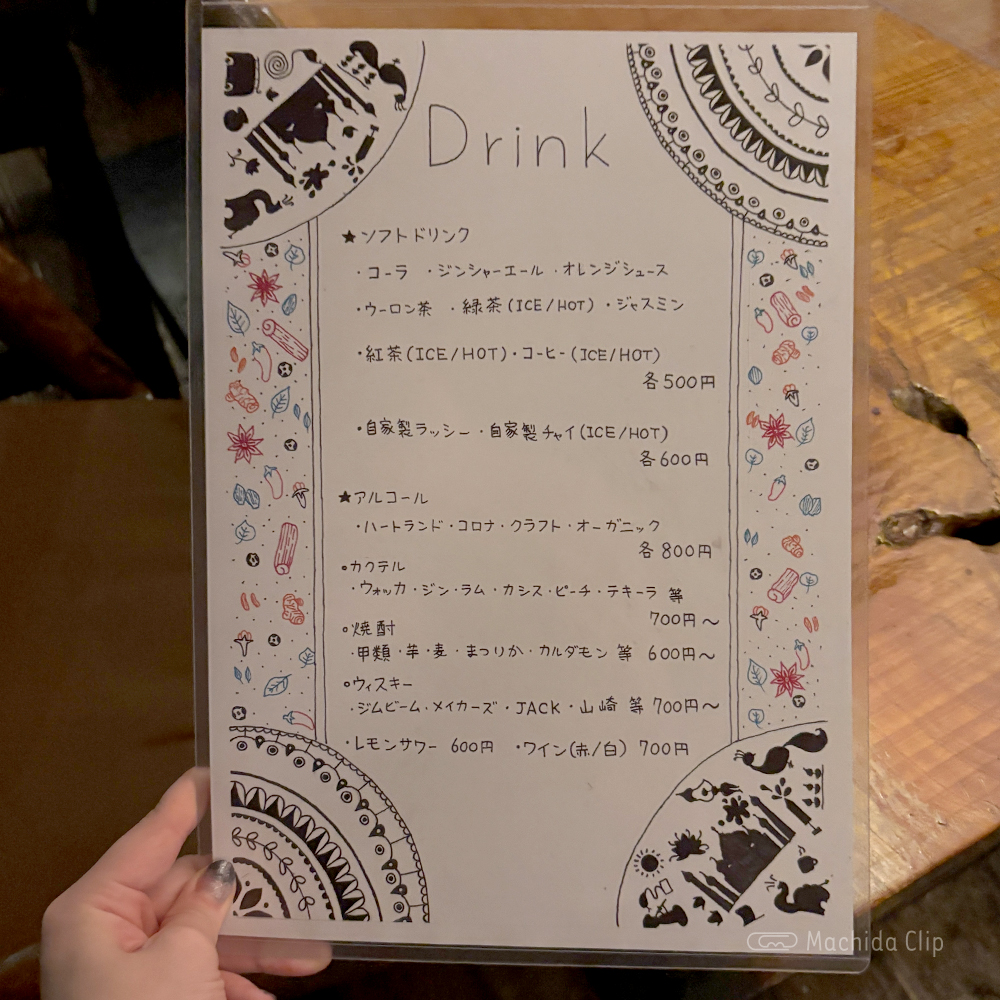 Drink
★ソフトドリンク
・コーラ ・ジンジャーエール ・オレンジジュース
・ウーロン茶 ・緑茶(ICE/HOT) ・ジャスミン
・紅茶(ICE/HOT)・コーヒー(ICE/HOT)
各500円
・自家製ラッシー ・自家製チャイ(ICE/HOT)
各600円
★アルコール
・ハートランド・コロナ・クラフト・オーガニック
各800円
○カクテル
・ウォッカ・ジン・ラム・カシス・ピーチ・テキーラ 等
700円～
○焼酎
・甲類・芋・麦・まつりか・カルダモン 等 600円～
○ウィスキー
・ジムビーム・メイカーズ・JACK・山崎 等 700円～
・レモンサワー 600円 ・ワイン(赤/白) 700円
Machida Clip